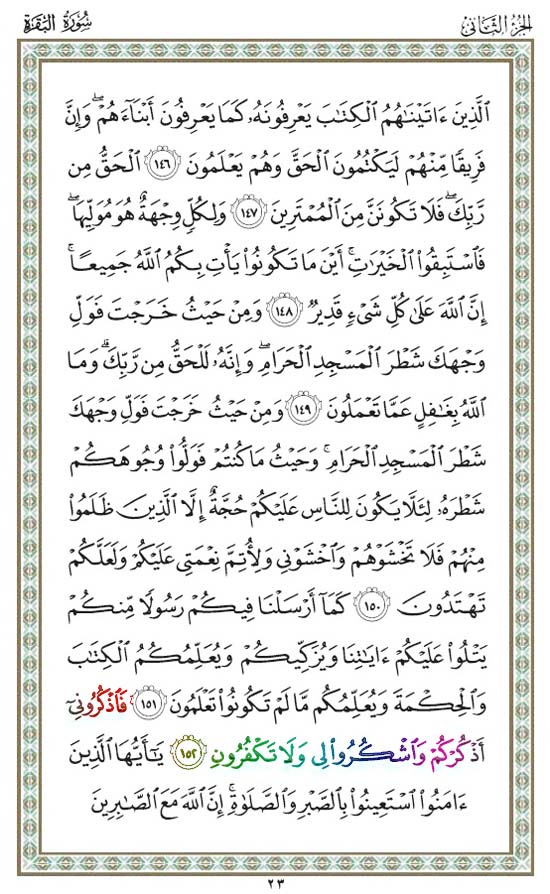 الجزء الثاني
سورة البقرة
ٱلَّذِينَ ءَاتَيْنَٰهُمُ ٱلْكِتَٰبَ يَعْرِفُونَهُۥ كَمَا يَعْرِفُونَ أَبْنَآءَهُمْ ۖ وَإِنَّ
فَرِيقًا مِّنْهُمْ لَيَكْتُمُونَ ٱلْحَقَّ وَهُمْ يَعْلَمُونَ ١٤٦ ٱلْحَقُّ مِن
رَّبِّكَ ۖ فَلَا تَكُونَنَّ مِنَ ٱلْمُمْتَرِينَ ١٤٧ وَلِكُلٍّ وِجْهَةٌ هُوَ مُوَلِّيهَا ۖ
فَٱسْتَبِقُوا۟ ٱلْخَيْرَٰتِ ۚ أَيْنَ مَا تَكُونُوا۟ يَأْتِ بِكُمُ ٱللَّهُ جَمِيعًا ۚ
إِنَّ ٱللَّهَ عَلَىٰ كُلِّ شَىْءٍ قَدِيرٌ ١٤٨ وَمِنْ حَيْثُ خَرَجْتَ فَوَلِّ
وَجْهَكَ شَطْرَ ٱلْمَسْجِدِ ٱلْحَرَامِ ۖ وَإِنَّهُۥ لَلْحَقُّ مِن رَّبِّكَ ۗ وَمَا
ٱللَّهُ بِغَٰفِلٍ عَمَّا تَعْمَلُونَ ١٤٩ وَمِنْ حَيْثُ خَرَجْتَ فَوَلِّ وَجْهَكَ
شَطْرَ ٱلْمَسْجِدِ ٱلْحَرَامِ ۚ وَحَيْثُ مَا كُنتُمْ فَوَلُّوا۟ وُجُوهَكُمْ
شَطْرَهُۥ لِئَلَّا يَكُونَ لِلنَّاسِ عَلَيْكُمْ حُجَّةٌ إِلَّا ٱلَّذِينَ ظَلَمُوا۟
مِنْهُمْ فَلَا تَخْشَوْهُمْ وَٱخْشَوْنِى وَلِأُتِمَّ نِعْمَتِى عَلَيْكُمْ وَلَعَلَّكُمْ
تَهْتَدُونَ ١٥٠ كَمَآ أَرْسَلْنَا فِيكُمْ رَسُولًا مِّنكُمْ
يَتْلُوا۟ عَلَيْكُمْ ءَايَٰتِنَا وَيُزَكِّيكُمْ وَيُعَلِّمُكُمُ ٱلْكِتَٰبَ
وَٱلْحِكْمَةَ وَيُعَلِّمُكُم مَّا لَمْ تَكُونُوا۟ تَعْلَمُونَ ١٥١ فَٱذْكُرُونِىٓ
أَذْكُرْكُمْ وَٱشْكُرُوا۟ لِى وَلَا تَكْفُرُونِ ١٥٢ يَٰٓأَيُّهَا ٱلَّذِينَ
ءَامَنُوا۟ ٱسْتَعِينُوا۟ بِٱلصَّبْرِ وَٱلصَّلَوٰةِ ۚ إِنَّ ٱللَّهَ مَعَ ٱلصَّٰبِرِينَ
٢٣